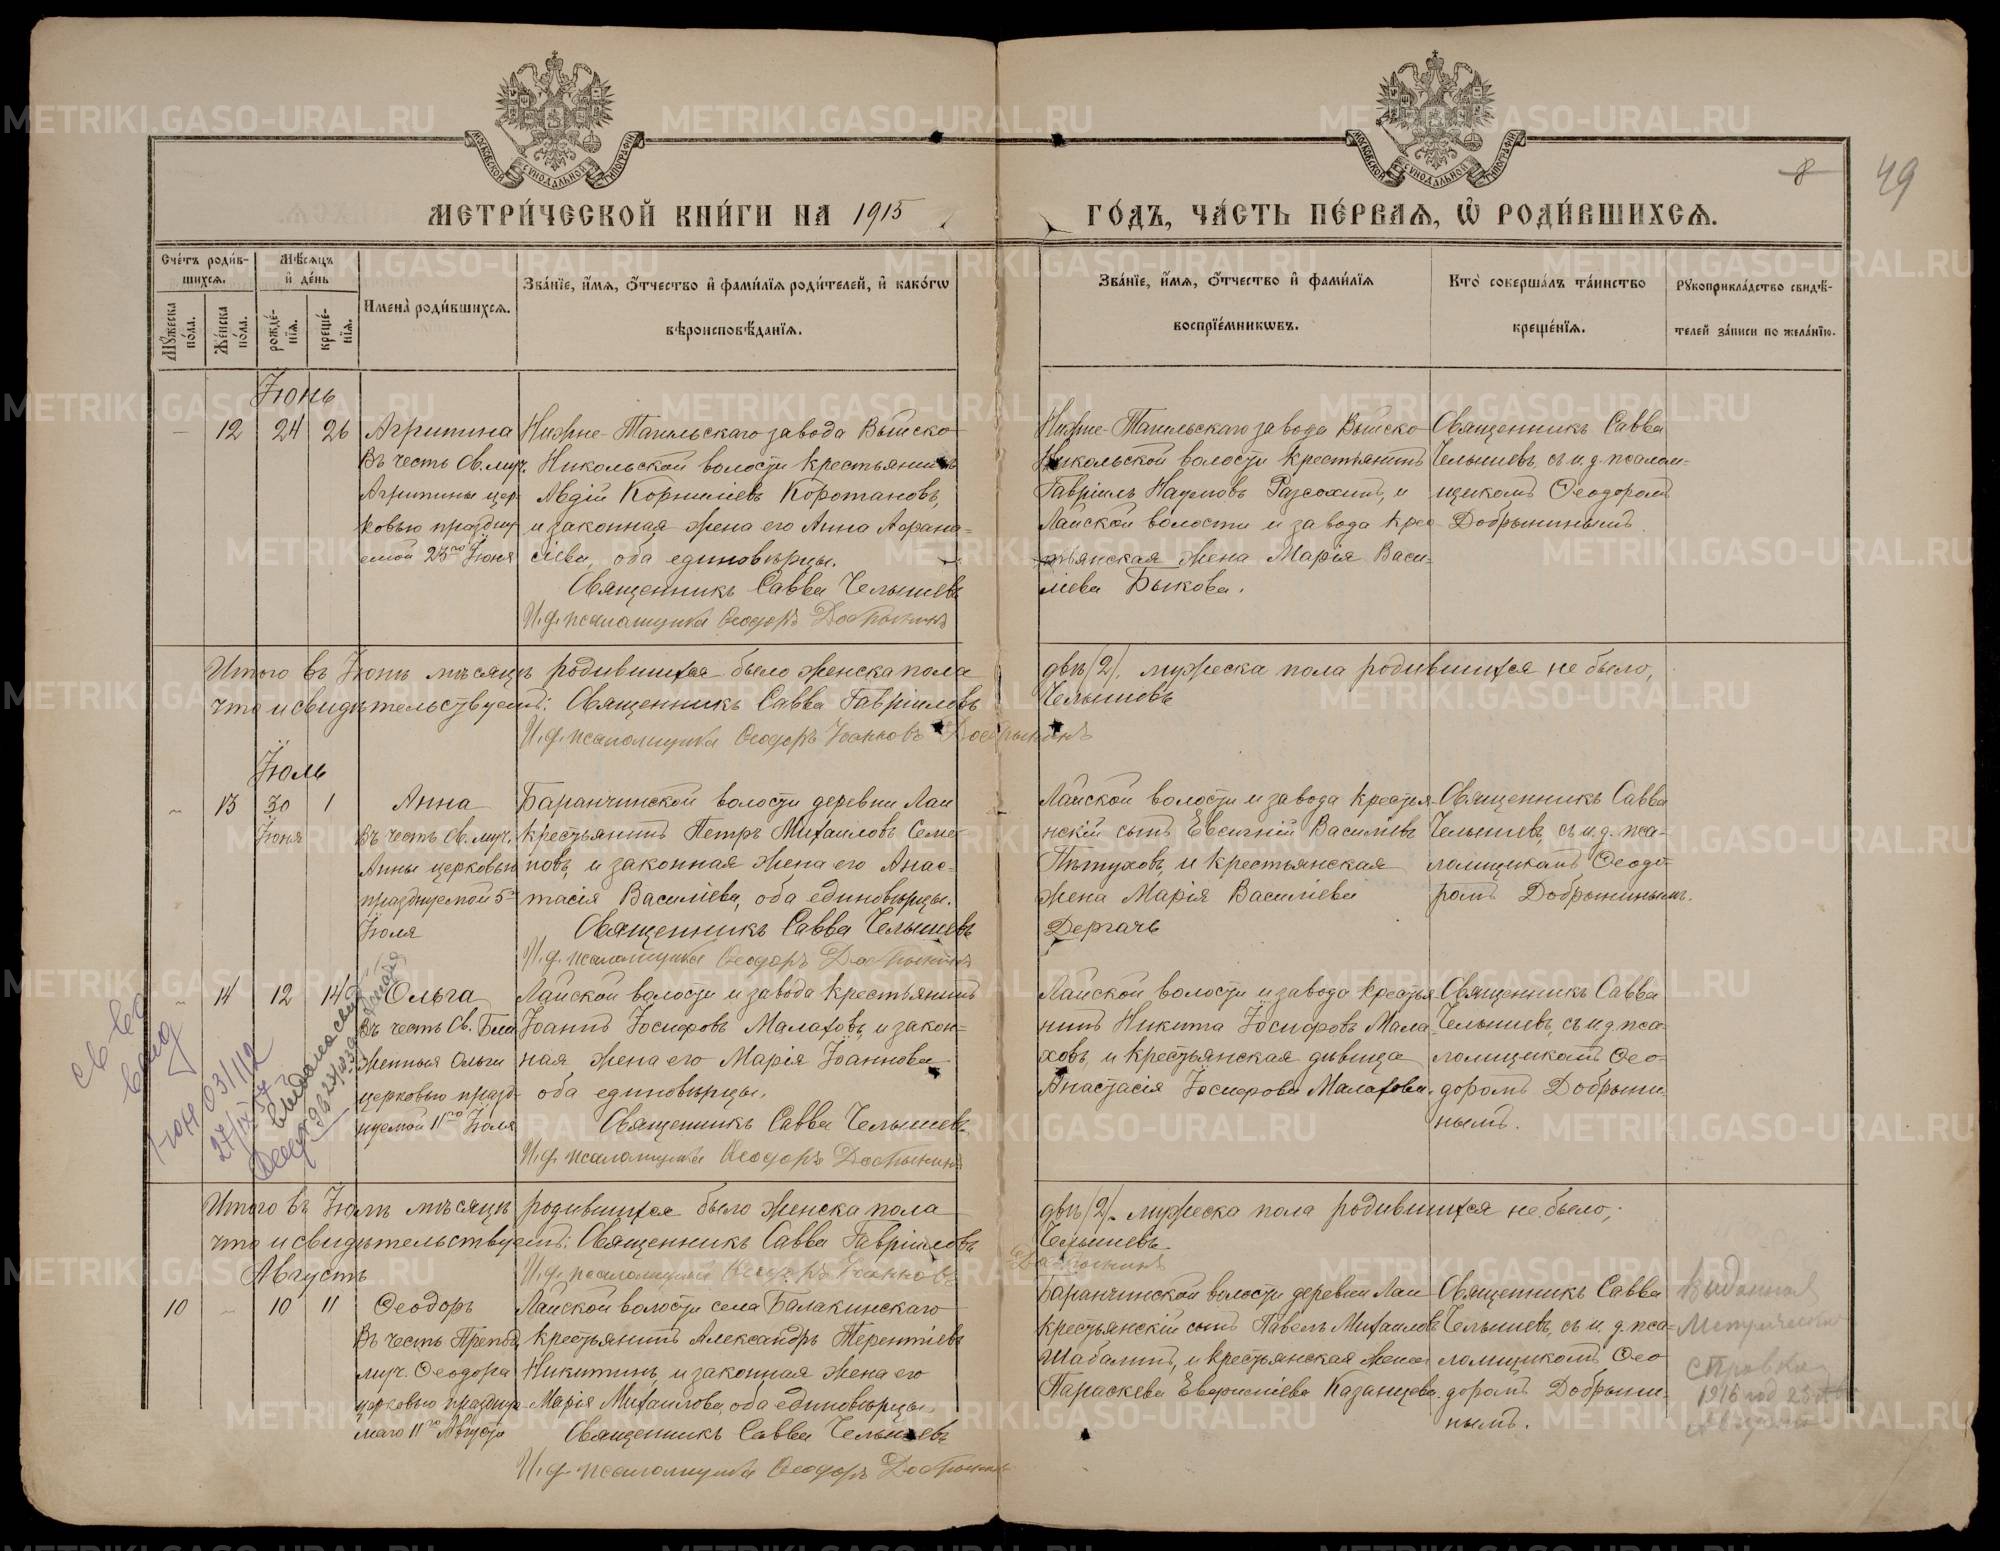 МОСКОВСКОЙ СѴНОДАЛЬНОЙ ТИПОГРАФІИ
МОСКОВСКОЙ СѴНОДАЛЬНОЙ ТИПОГРАФІИ
8
49
МЕТРИ́ЧЕСКОЙ КНИ́ГИ НА 1915 ГО́ДЪ, ЧА́СТЬ ПЕ́РВАЯ, Ѡ҆ РОДИ́ВШИХСЯ.
Сче́тъ роди́в-
шихся.
Мѣ́сяцъ
и҆ де́нь
Мꙋ́жеска по́ла.
Же́нска по́ла.
рожде́-
нїя.
креще́-
нїя.
Имена̀ роди́вшихся.
Зва́нїе, и҆́мя, ѻ҆́тчество и҆ фами́лїя роди́телей, и҆ како́гѡ
вѣроисповѣ́данїя.
Зва́нїе, и҆́мя, ѻ҆́тчество и҆ фами́лїя
воспрїе́мникѡвъ.
Кто̀ соверша́лъ та́инство
креще́нїя.
Рꙋкоприкла́дство свидѣ́-
телей за́писи по жела́нїю.
Іюнь
— 12 24 26
Агрипина
Въ честь Св. муч.
Агрипины цер-
ковью праздну-
емой 23го Іюня
Нижне-Тагильскаго завода Выйско-
Никольской волости крестьянинъ
Авдій Корниліевъ Коротановъ,
и законная жена его Анна Афана-
сіева, оба единовѣрцы.
Священникъ Савва Челышевъ
И. д. псаломщика Ѳеодоръ Добрынинъ
Нижне-Тагильскаго завода Выйско-
Никольской волости крестьянинъ
Гавріилъ Наумовъ Разсохинъ, и
Лайской волости и завода кре-
стьянская жена Марія Васи-
ліева Быкова.
Священникъ Савва
Челышевъ, съ и. д. псалом-
щикомъ Ѳеодоромъ
Добрынинымъ
Итого въ Іюнѣ мѣсяцѣ родившихся было женска пола двѣ /2/, мужеска пола родившихся не было,
что и свидѣтельствуемъ: Священникъ Савва Гавріиловъ Челышевъ
И. д. псаломщика Ѳеодоръ Іоанновъ Добрынинъ
Іюль
— 13 30 1
Іюня
Анна
Въ честь Св. муч.
Анны церковью
празднуемой 5го
Іюля
Баранчинской волости деревни Лаи
крестьянинъ Петръ Михаиловъ Семе-
новъ, и законная жена его Анас-
тасія Василіева, оба единовѣрцы.
Священникъ Савва Челышевъ
И. д. псаломщика Ѳеодоръ Добрынинъ
Лайской волости и завода крестья-
нскій сынъ Евсигній Василіевъ
Пѣтуховъ, и крестьянская
жена Марія Василіева
Дергачъ
Священникъ Савва
Челышевъ, съ и. д. пса-
ломщикомъ Ѳеодо-
ромъ Добрынинымъ.
— 14 12 14
Ольга
Въ честь Св. Бла-
женныя Ольги
церковью празд-
нуемой 11го Іюля
Лайской волости и завода крестьянинъ
Іоаннъ Іосифовъ Малаховъ, и закон-
ная жена его Марія Іоаннова
оба единовѣрцы.
Священникъ Савва Челышевъ
И. д. псаломщика Ѳеодоръ Добрынинъ
Лайской волости и завода крестья-
нинъ Никита Іосифовъ Мала-
ховъ, и крестьянская дѣвица
Анастасія Іосифова Малахова.
Священникъ Савва
Челышевъ, съ и. д. пса-
ломщикомъ Ѳео-
доромъ Добрыни-
нымъ.
св-во
Итого въ Іюлѣ мѣсяцѣ родившихся было женска пола двѣ /2/. мужеска пола родившихся не было,
что и свидѣтельствуемъ: Священникъ Савва Гавріиловъ Челышевъ
И. д. псаломщика Ѳеодоръ Іоанновъ Добрынинъ
Августъ
10 — 10 11
Ѳеодоръ
Въ честь Препод.
муч. Ѳеодора
церковью праздну-
маго 11го Августа
Лайской волости села Балакинскаго
крестьянинъ Александръ Терентіевъ
Никитинъ, и законная жена его
Марія Михаилова, оба единовѣрцы.
Священникъ Савва Челышевъ
И. д. псаломщика Ѳеодоръ Добрынинъ
Баранчинской волости деревни Лаи
крестьянскій сынъ Павелъ Михаиловъ
Шабалинъ, и крестьянская жена
Параскева Евфиміева Казанцева.
Священникъ Савва
Челышевъ, съ и. д. пса-
ломщикомъ Ѳео-
доромъ Добрыни-
нымъ.
Выданная
Метрическая
справка
1916 год 23
Августа